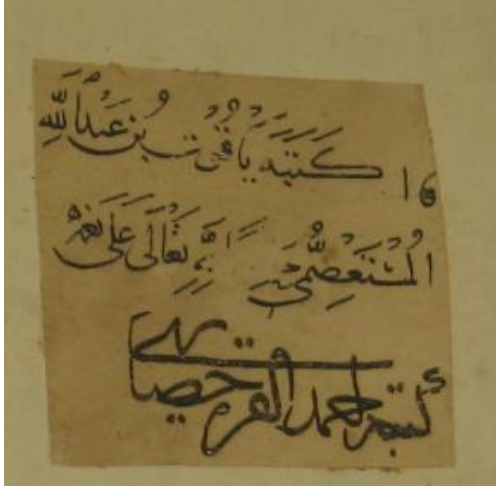 كتبه ياقوت بن عبد الله
المستعصمي لله تعالى على نعمه
كتبه احمد القره حصاري